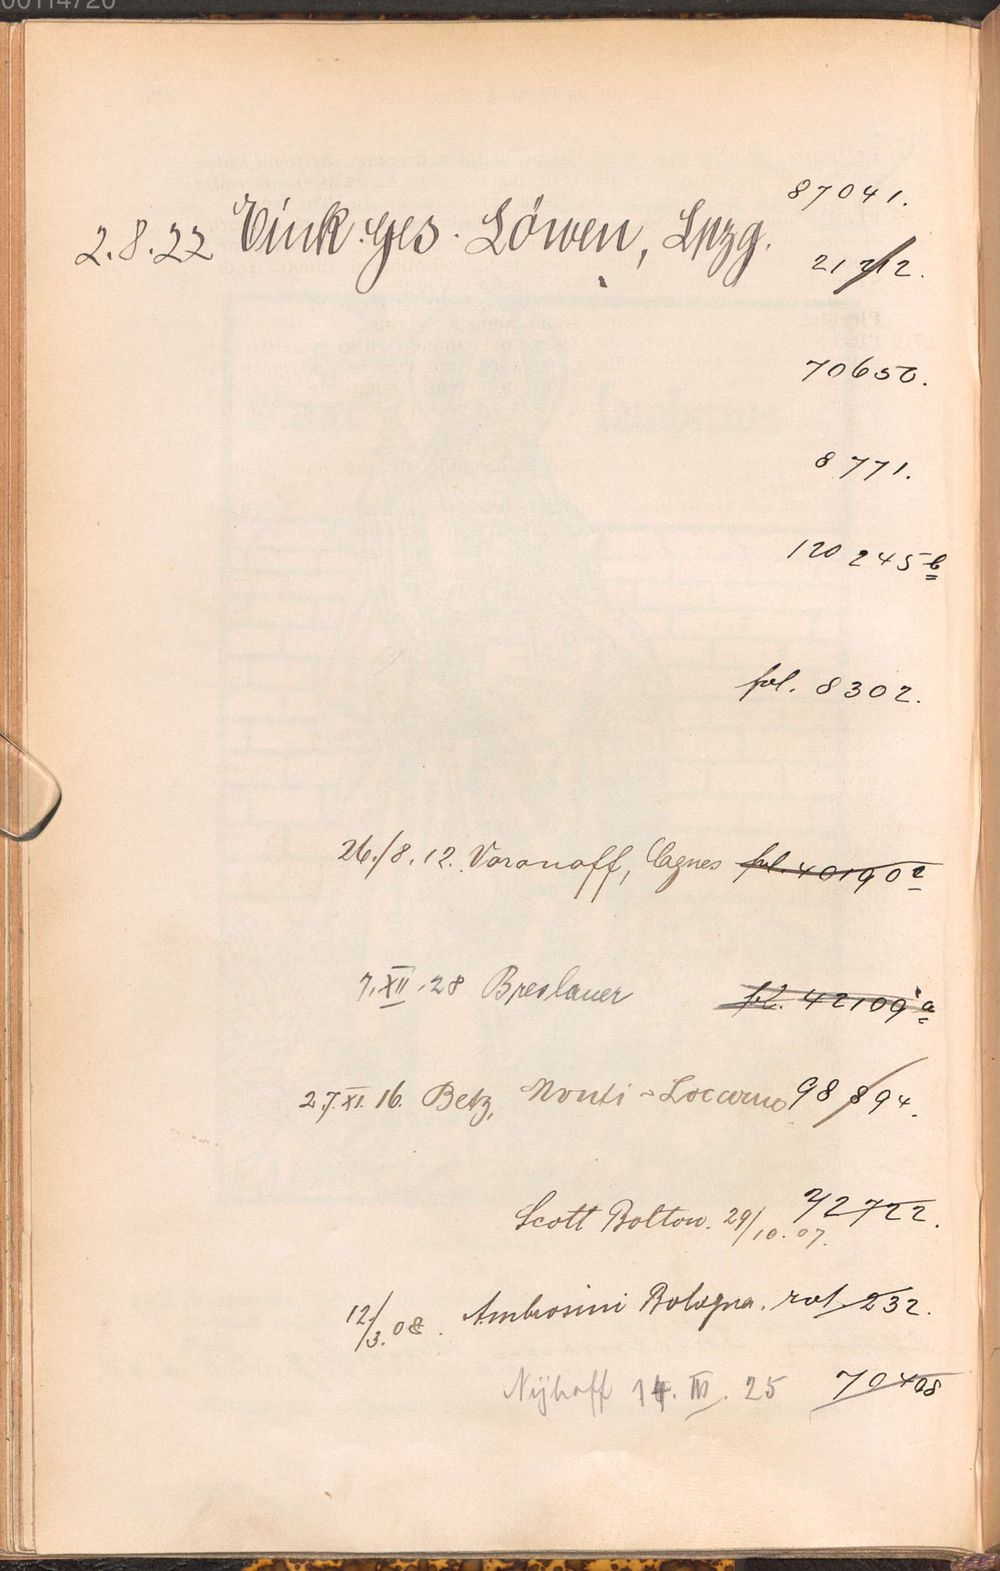 00114720
87041.
2.8.22 Eink. Ges. Löwen, Lpzg. 21212.
70650.
8771.
120245b
fol. 8302.
26./8.12. Voronoff, Cagnes fol. 40190
7.XII.28 Breslauer fol. 42109a
27.XI.16. Betz, Monti-Locarno 98894.
Scott Bolton. 29/10.07. 72722.
12/3.08. Ambrosini Bologna. rot 232.
Nijhoff 14.III.25 70408